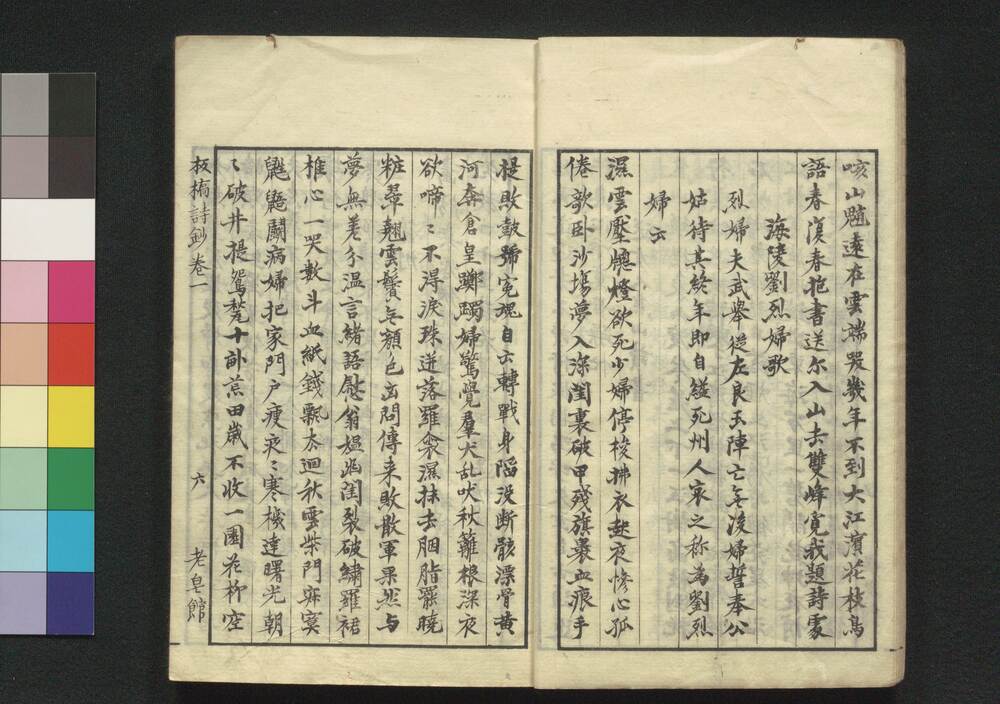 咳山飄遠在雲端罢幾年不到大江濱花枝鳥
語春復春抱書送尔入山去雙峰寛我題詩處
海陵劉烈婦歌
烈婦夫武舉從左良玉陣亡無後婦誓奉公
姑待其終年即自縊死州人哀之称為劉烈
婦云
濕雲壓牕燈欲死少婦停梭拂衣起夜慘心孤
倦欹卧沙場夢入深閨裏破甲残旗裹血痕手
提敗皷號寃魂自云轉戰身陥没断骸漂骨黄
河奔倉皇躑躅婦驚覺羣犬乱吠秋籬根深夜
欲啼〻不得淚珠迸落羅衾濕抹去胭脂罷曉
粧翠翹雲鬢無顏色出問傳来敗散軍果然与
夢無差分温言緒語慰翁媪幽閨裂破繡羅裙
椎心一哭數斗血紙錢飄太迴秋雲柴門寂寞
鼪鼯鬪病婦把家門户瘦夜〻寒機達曙光朝
〻破井提鴛甃十畝荒田歳不收一園花柳空
板橋詩鈔 卷一
六
老皂館